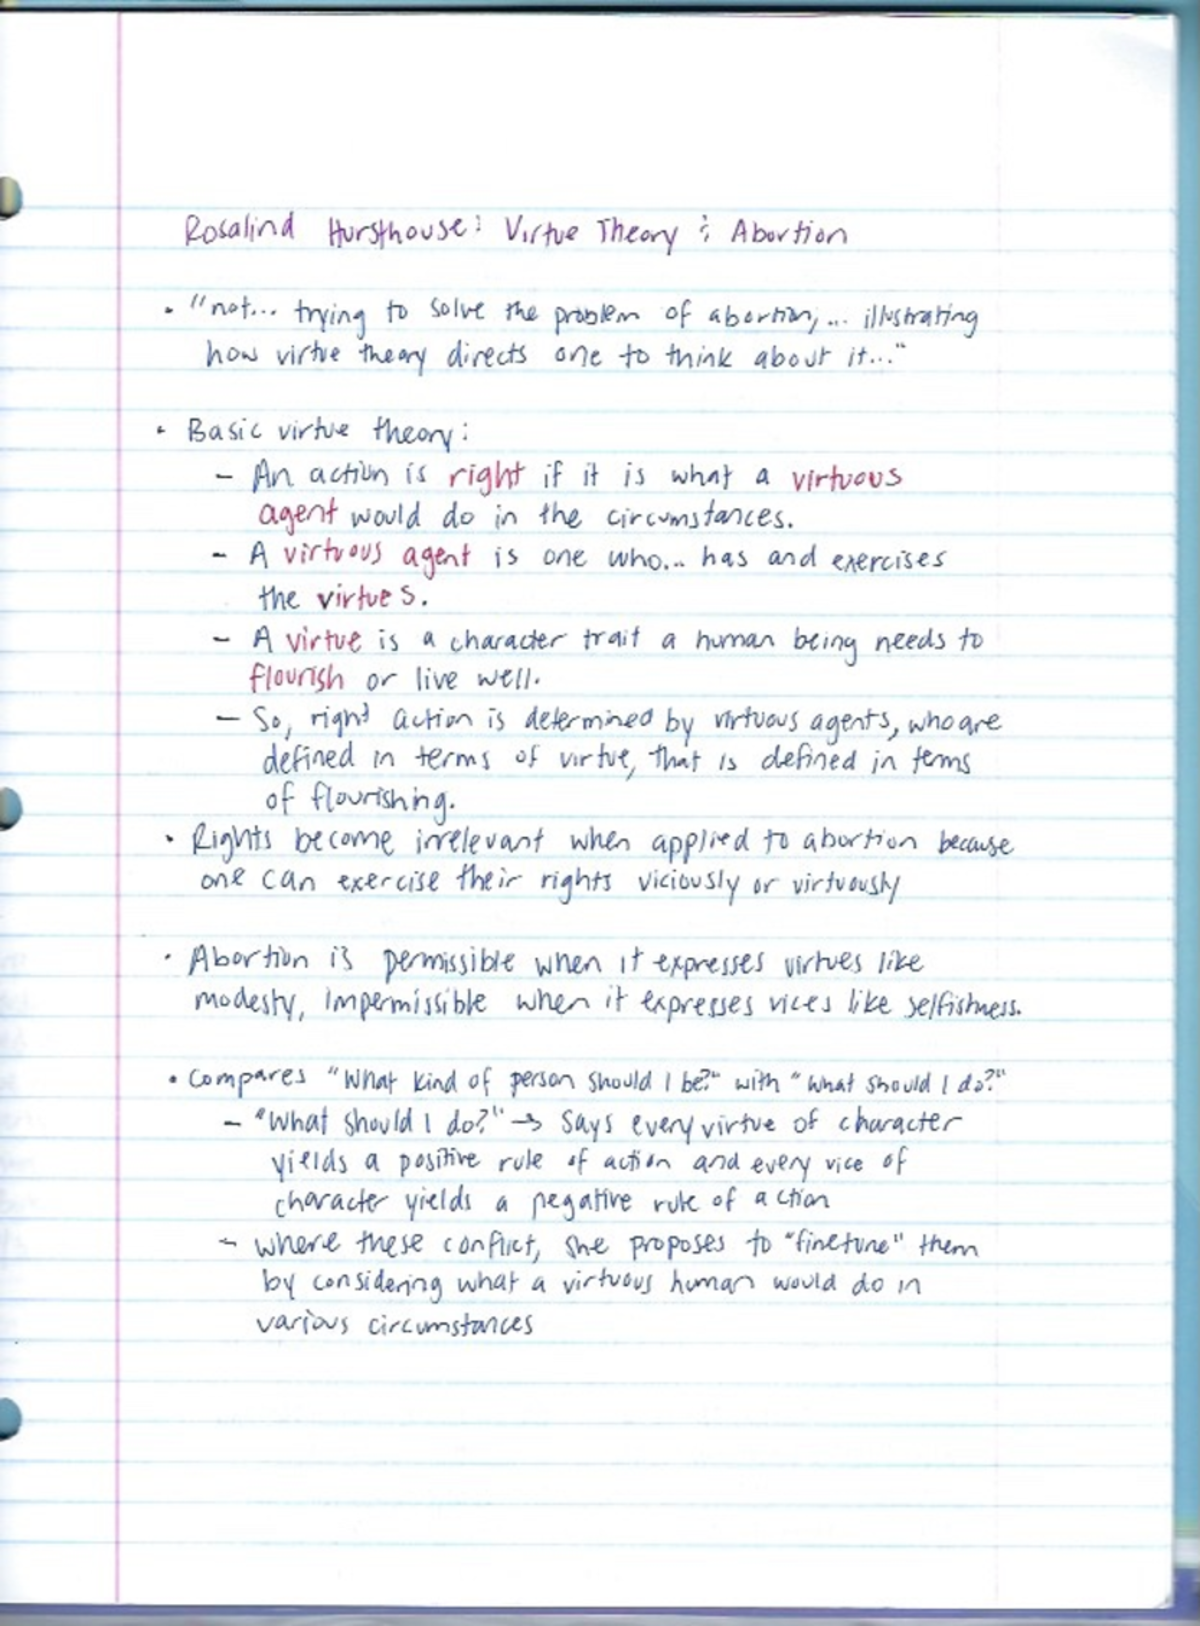 Rosalind Hursthouse: Virtue Theory & Abortion
• "not... trying to solve the problem of abortion,... illustrating
how virtue theory directs one to think about it..."
• Basic virtue theory:
– An action is right if it is what a virtuous
agent would do in the circumstances.
– A virtuous agent is one who... has and exercises
the virtues.
– A virtue is a character trait a human being needs to
flourish or live well.
– So, right action is determined by virtuous agents, who are
defined in terms of virtue, that is defined in terms
of flourishing.
• Rights become irrelevant when applied to abortion because
one can exercise their rights viciously or virtuously
• Abortion is permissible when it expresses virtues like
modesty, impermissible when it expresses vices like selfishness.
• Compares "What kind of person should I be?" with "What should I do?"
– "What should I do?" → says every virtue of character
yields a positive rule of action and every vice of
character yields a negative rule of action
– where these conflict, she proposes to "finetune" them
by considering what a virtuous human would do in
various circumstances